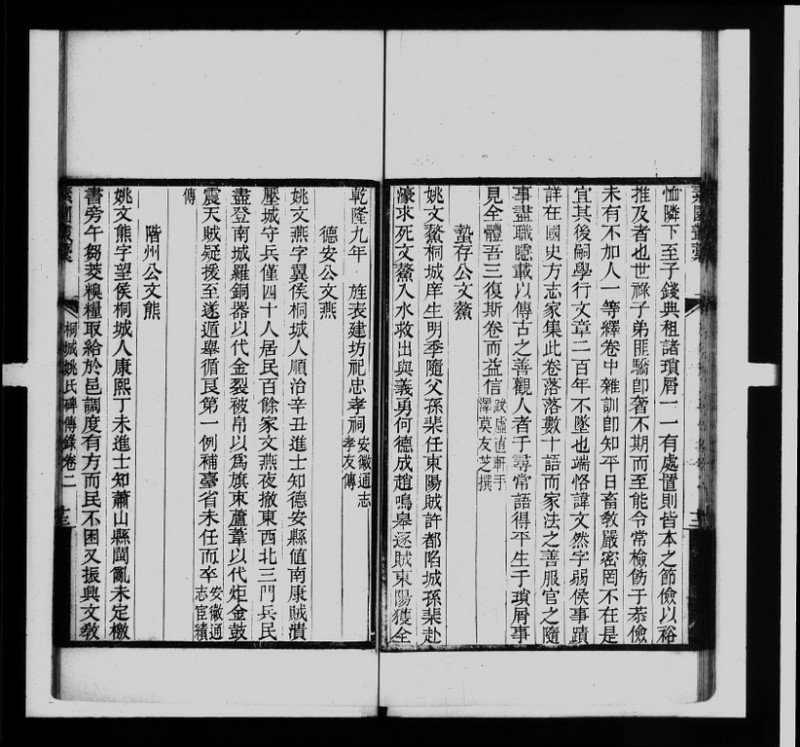 恤隣下至子錢典租諸瑣屑一一有處置則皆本之節儉以裕
推及者也世祿子弟匪驕卽奢不期而至能令常檢飭于恭儉
未有不加人一等繹卷中雜訓卽知平日畜敎嚴密罔不在是
宜其後嗣學行文章二百年不墜也端恪諱文然字弱侯事蹟
詳在國史方志家集此卷落落數十語而家法之善服官之隨
事盡職隱載以傳古之善觀人者于尋常語得平生于瑣屑事
見全體吾三復斯卷而益信跋虛直軒手澤莫友芝撰
蟄存公文鰲
姚文鰲桐城庠生明季隨父孫棐任東陽賊許都陷城孫棐赴
濠求死文鰲入水救出與義勇何德成趙鳴皋逐賊東陽獲全
乾隆九年 旌表建坊祀忠孝祠安徽通志孝友傳
德安公文燕
姚文燕字翼侯桐城人順治辛丑進士知德安縣値南康賊潰
壓城守兵僅四十人居民百餘家文燕夜撤東西北三門兵民
盡登南城羅銅器以代金裂被帛以爲旗束蘆葦以代炬金鼓
震天賊疑援至遂遁舉循良第一例補臺省未任而卒安徽通志宦績
傳
階州公文熊
姚文熊字望侯桐城人康熙丁未進士知蕭山縣閩亂未定檄
書旁午芻茭糗糧取給於邑調度有方而民不困又振興文敎
桐城姚氏碑傳錄卷二 十三